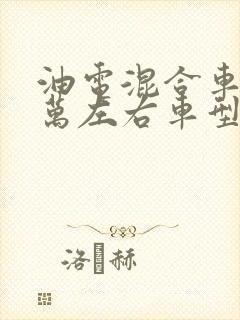 油電混合車
萬左右車型
洛 赫